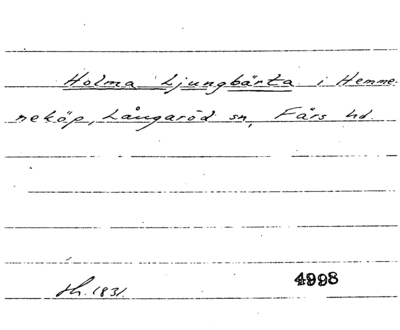 Holma Ljungbärta i Hemme-
neköp, Långaröd sn, Färs hd.
th. 1831.
4998